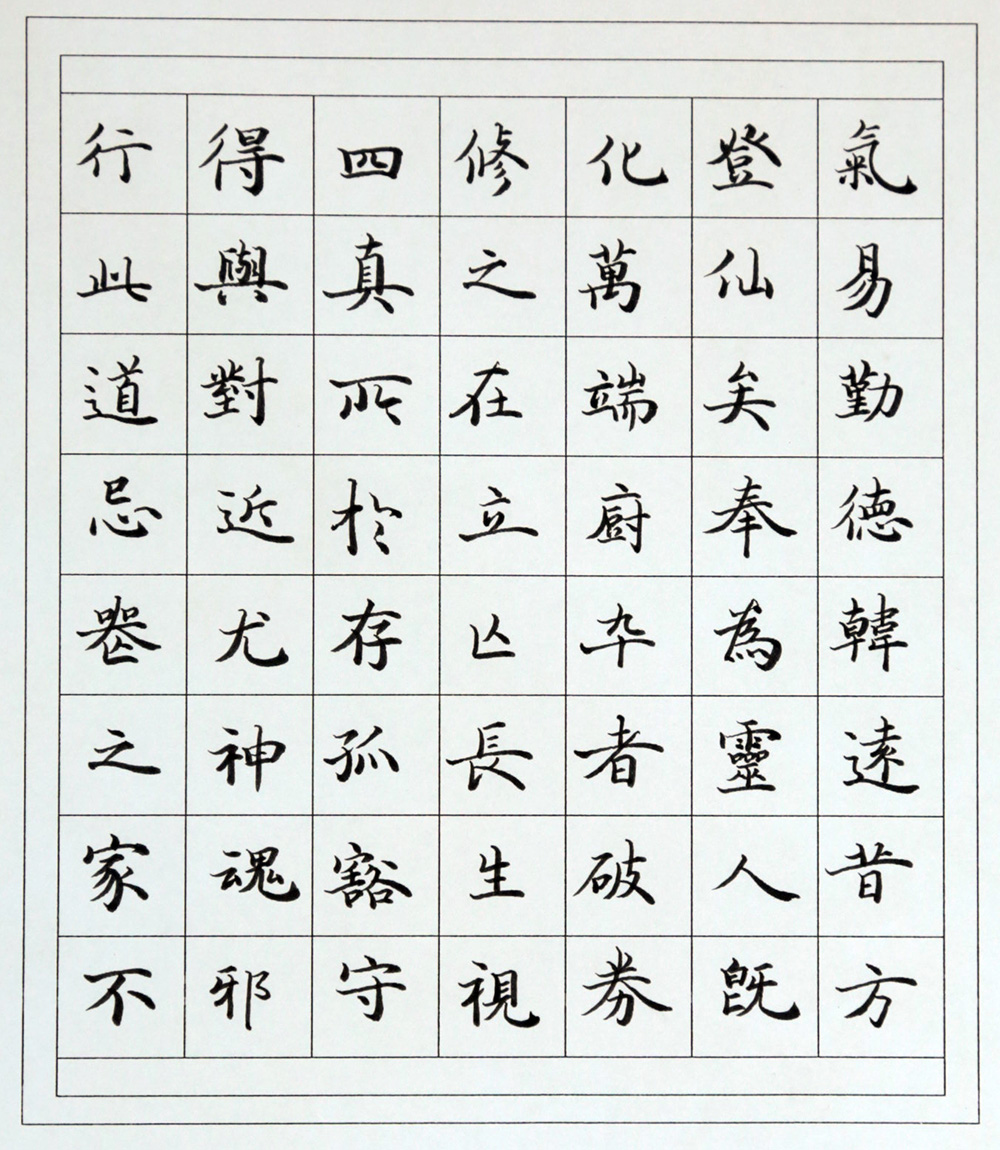 行此道忌喪之家不
得與對近尤神魂邪
四真所於存孤豁守
修之在立亾長生視
化萬端廚卆者破券
登仙矣奉為靈人既
氣易勤德韓遠昔方